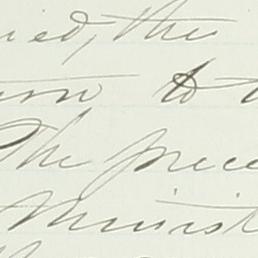 ied, the
to
The prece
Minist